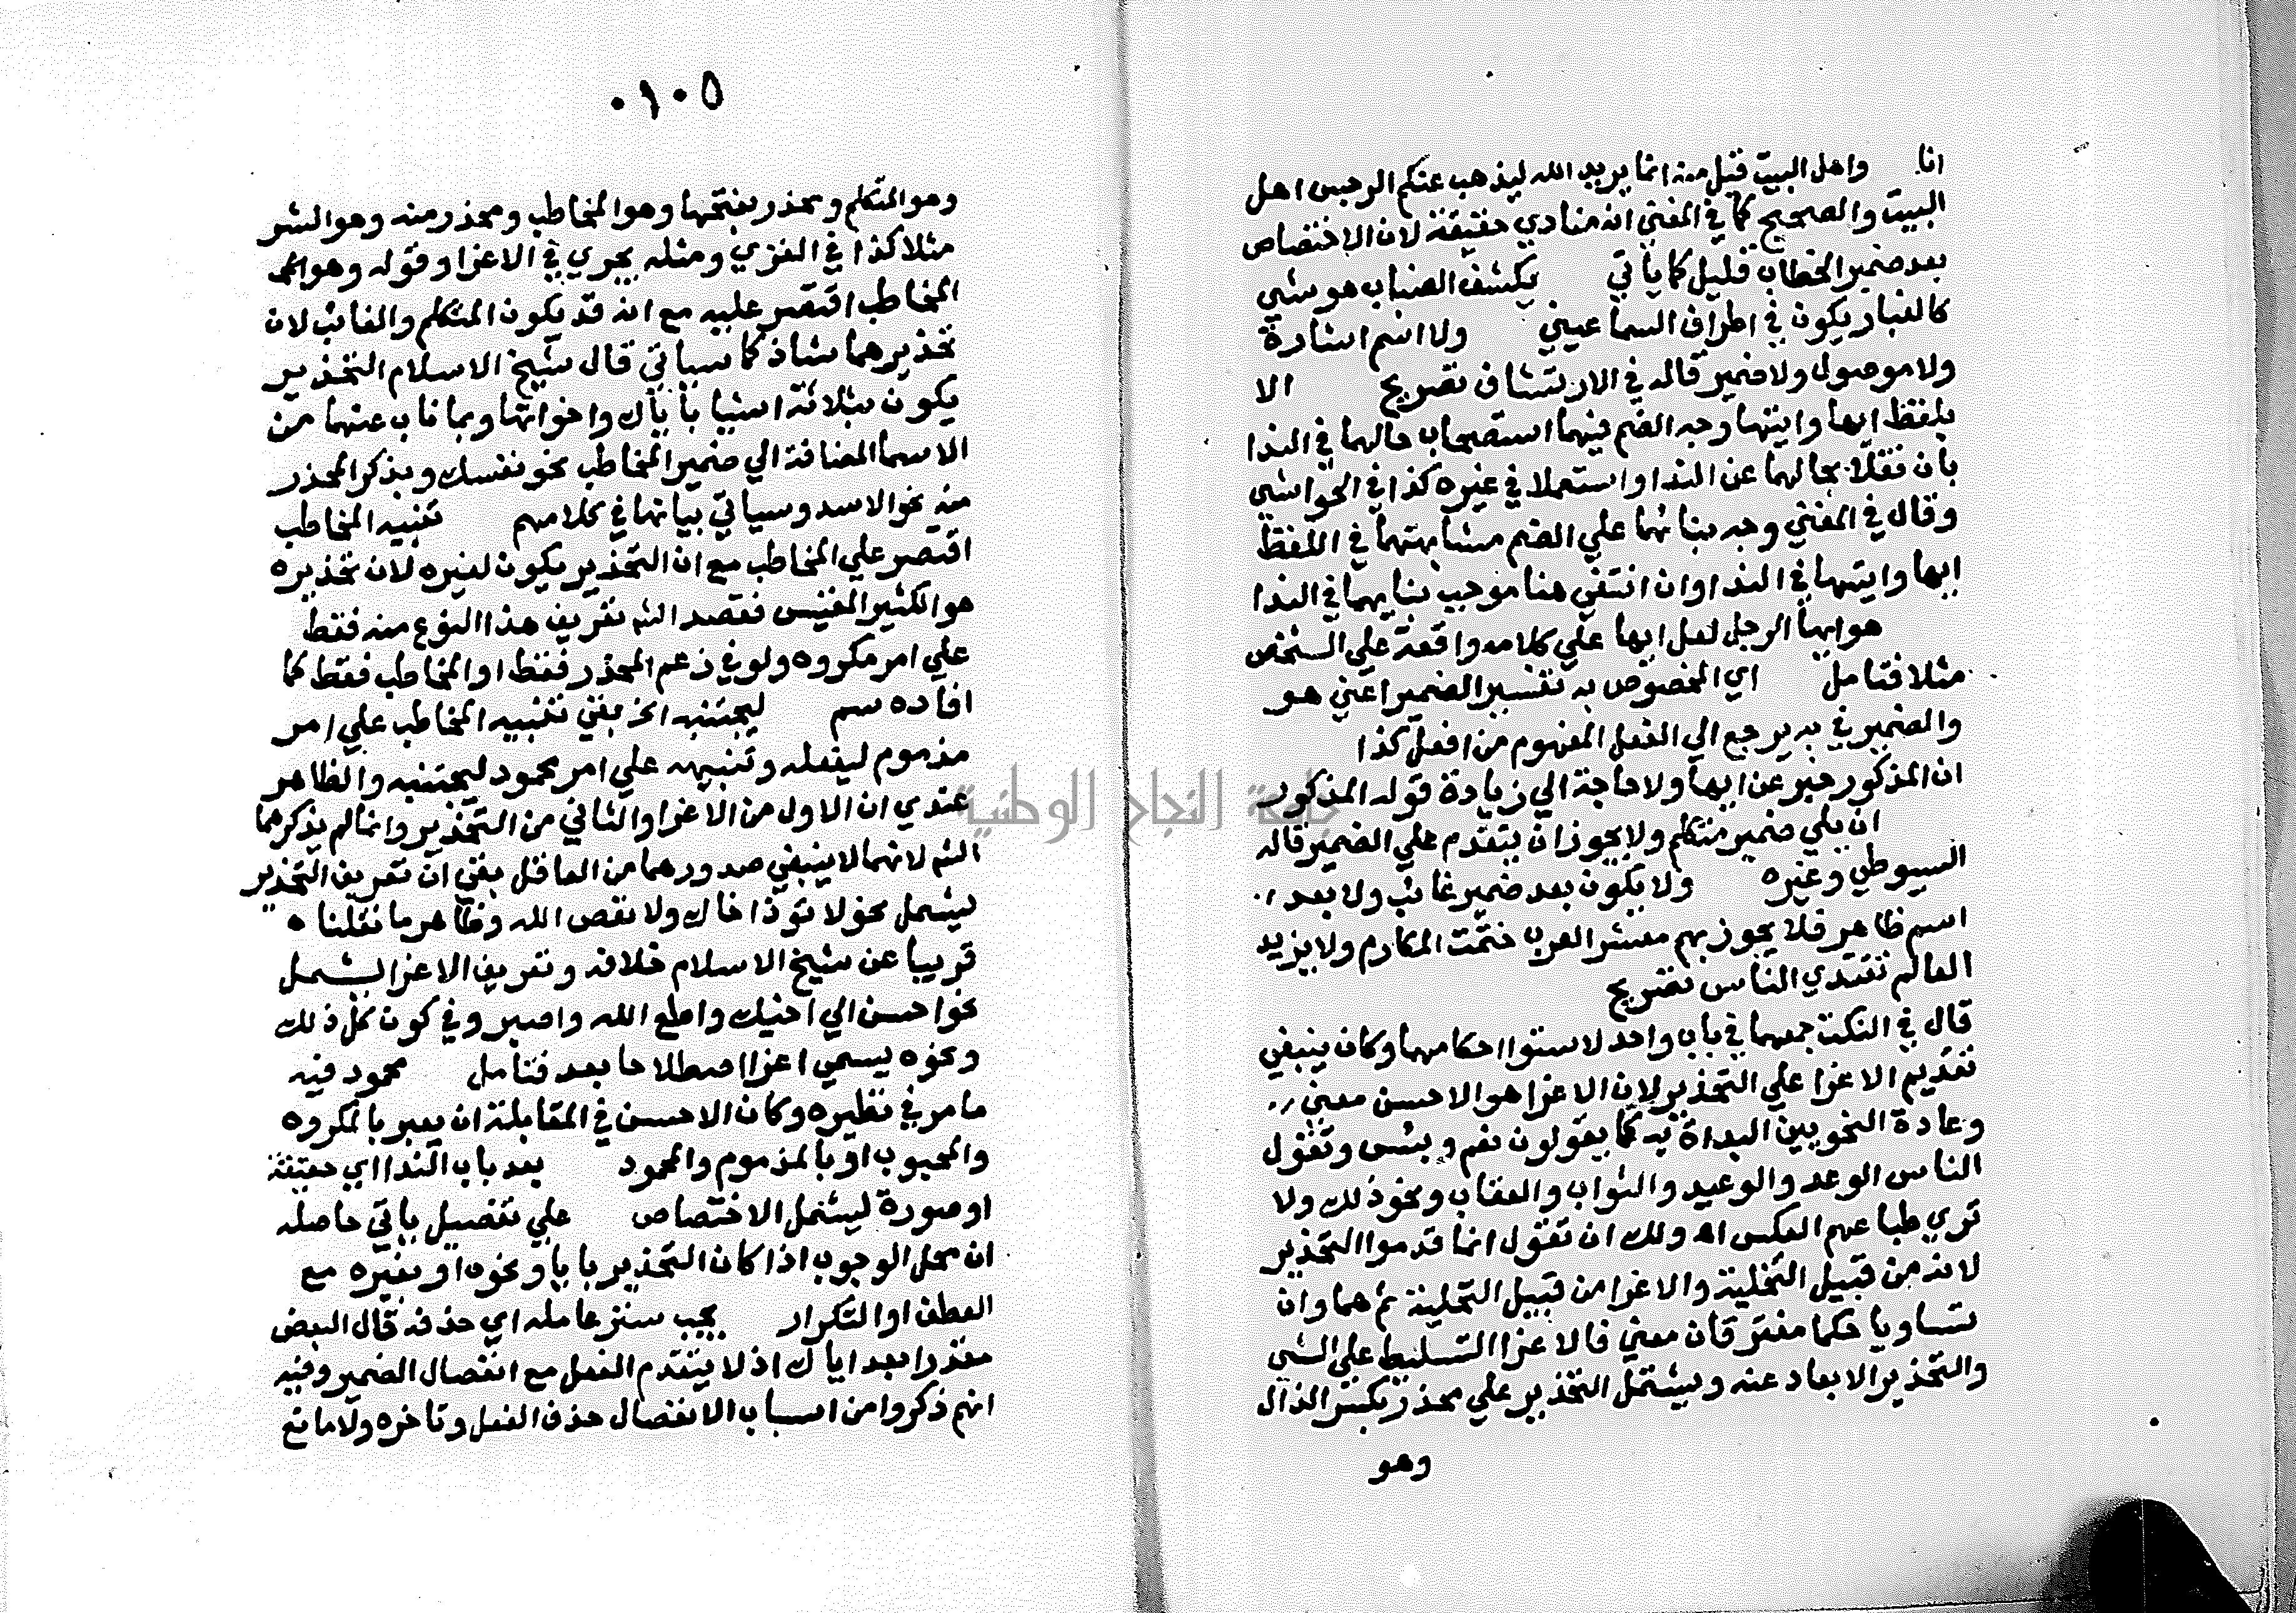 انا واهل البيت قيل منه انما يريد الله ليذهب عنكم الرجس اهل
البيت والصحيح كما في المغني انه منادي حقيقة لان الاختصاص
بعد ضمير الخطاب قليل كما ياتي يكشف الضباب هو شي
كالغبار يكون في اطراف السما عيني ولا اسم اشارة
ولا موصول ولا ضمير قاله في الارتشاف تصريح الا
بلفظ ايها وايتها وجه الضم فيهما استصحاب حالهما في الندا
بان نقلا بحالهما عن الندا واستعملا في غيره كذا في الحواشي
وقال في المغني وجه بنائهما علي الضم مشابهتهما في اللفظ
ايها وايتها في الندا وان انتفي هنا موجب بنايهما في الندا
هو ايها الرجل لعل ايها علي كلامه واقعة علي الشخص
مثلا فتامل اي المخصوص به تفسير الضمير اعني هو
والضمير في به يرجع الي الفعل المفهوم من افعل كذا
ان المذكور خبر عن ايها ولا حاجة الي زيادة قوله المذكور
ان يلي ضمير متكلم ولا يجوز ان يتقدم علي الضمير قاله
السيوطي وغيره ولا يكون بعد ضمير غائب ولا بعد
اسم ظاهر فلا يجوز بهم معشر العرب ختمت المكارم ولا بزيد
العالم تقتدي الناس تصريح
قال في النكت جمعهما في باب واحد لاستوا احكامهما وكان ينبغي
تقديم الاغرا علي التحذير لان الاغرا هو الاحسن معني
وعادة النحويين البداة به كما يقولون نعم وبئس وتقول
الناس الوعد والوعيد والثواب والعقاب ونحو ذلك ولا
تري طباعهم العكس اه ولك ان تقول انما قدموا التحذير
لانه من قبيل التخلية والاغرا من قبيل التحلية ثم هما وان
تساويا حكما مفترقان معني فالاغرا التسليط علي الشي
والتحذير الابعاد عنه ويشتمل التحذير علي محذر بكسر الذال
وهو
٠١٠٥
وهو المتكلم ومحذر بفتحها وهو المخاطب ومحذر منه وهو الشر
مثلا كذا في الغزي ومثله يجري في الاغرا وقوله وهو
المخاطب اقتصر عليه مع انه قد يكون المتكلم والغائب لان
تحذيرهما شاذ كما سياتي قال شيخ الاسلام التحذير
يكون بثلاثة اشيا باياك واخواتها وبما ناب عنهما من
الاسما المضافة الي ضمير المخاطب نحو نفسك وبذكر المحذر
منه نحو الاسد وسياتي بيانها في كلامهم تنبيه المخاطب
اقتصر علي المخاطب مع ان التحذير يكون لغيره لان تحذيره
هو الكثير المقيس فقصد الشم تعريف هذا النوع منه فقط
علي امر مكروه ولو في زعم المحذر فقط او المخاطب فقط كما
افاده سم ليجتنبه الخ بقي تنبيه المخاطب علي امر
مذموم ليفعله وتنبيهه علي امر محمود ليجتنبه والظاهر
عندي ان الاول من الاغرا والثاني من التحذير وانما لم يذكرهما
الشم لانهما لا ينبغي صدورهما من العاقل بقي ان تعريف التحذير
يشمل نحو لا توذ اخاك ولا تعص الله وظاهر ما نقلناه
قريبا عن شيخ الاسلام خلافه وتعريف الاغرا يشمل
نحو احسن الي اخيك واطع الله واصبر وفي كون كل ذلك
ونحوه يسمي اغرا اصطلاحا بعد فتامل محمود فيه
ما مر في نظيره وكان الاحسن في المقابلة ان يعبر بالمكروه
والمحبوب او بالمذموم والمحمود بعد باب الندا اي حقيقة
او صورة ليشمل الاختصاص علي تفصيل ياتي حاصله
ان محل الوجوب اذا كان التحذير بايا ونحوه او بغيره مع
العطف او التكرار يجب ستر عامله اي حذفه قال البعض
مقدرا بعد اياك اذ لا يتقدم الفعل مع انفصال الضمير وفيه
انهم ذكروا من اسباب الانفصال حذف الفعل وتاخره ولا مانع
جامعة النجاح الوطنية